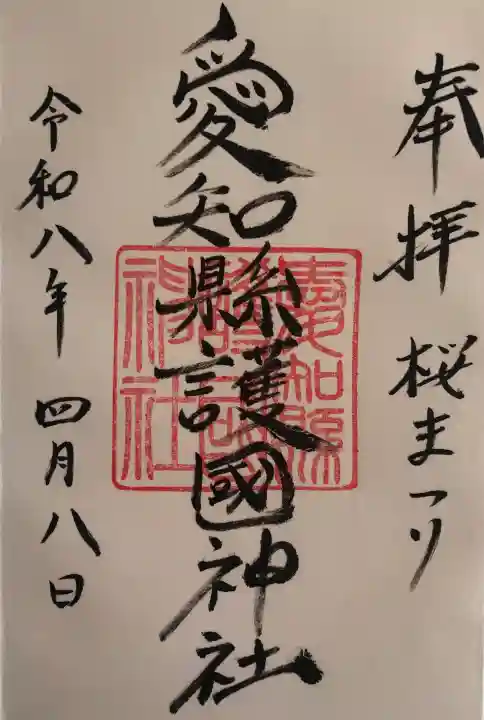 奉拝 桜まつり
愛知縣護國神社
愛知縣
護國
神社
令和八年 四月八日